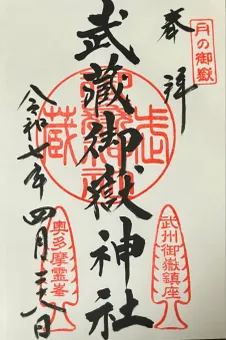 月の御嶽
奉拝
武蔵御嶽神社
令和七年四月二十八日
武州御嶽鎮座
奥多摩霊峯